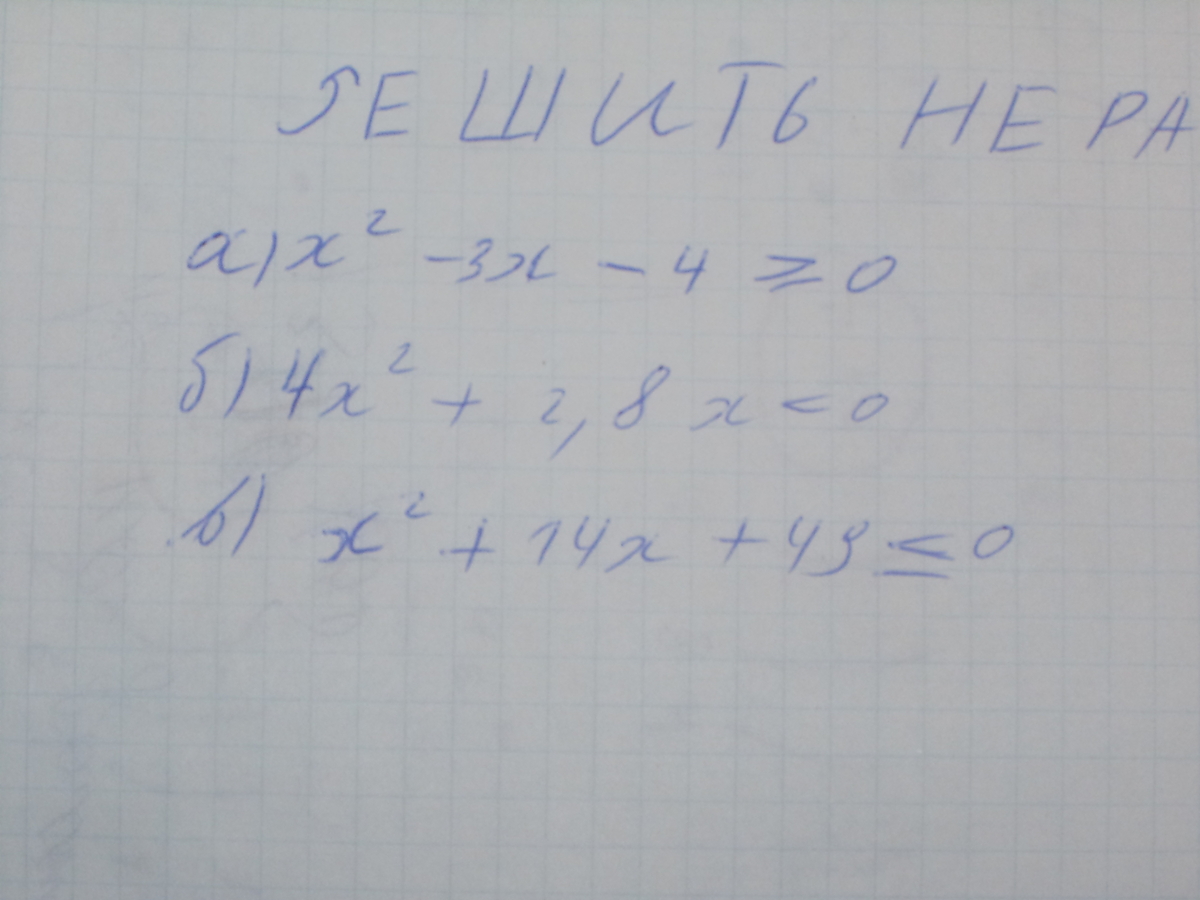 РЕШИТЬ НЕРА
а) x² - 3x - 4 ⩾ 0
б) 4x² + 2,8x < 0
в) x² + 14x + 49 ≤ 0